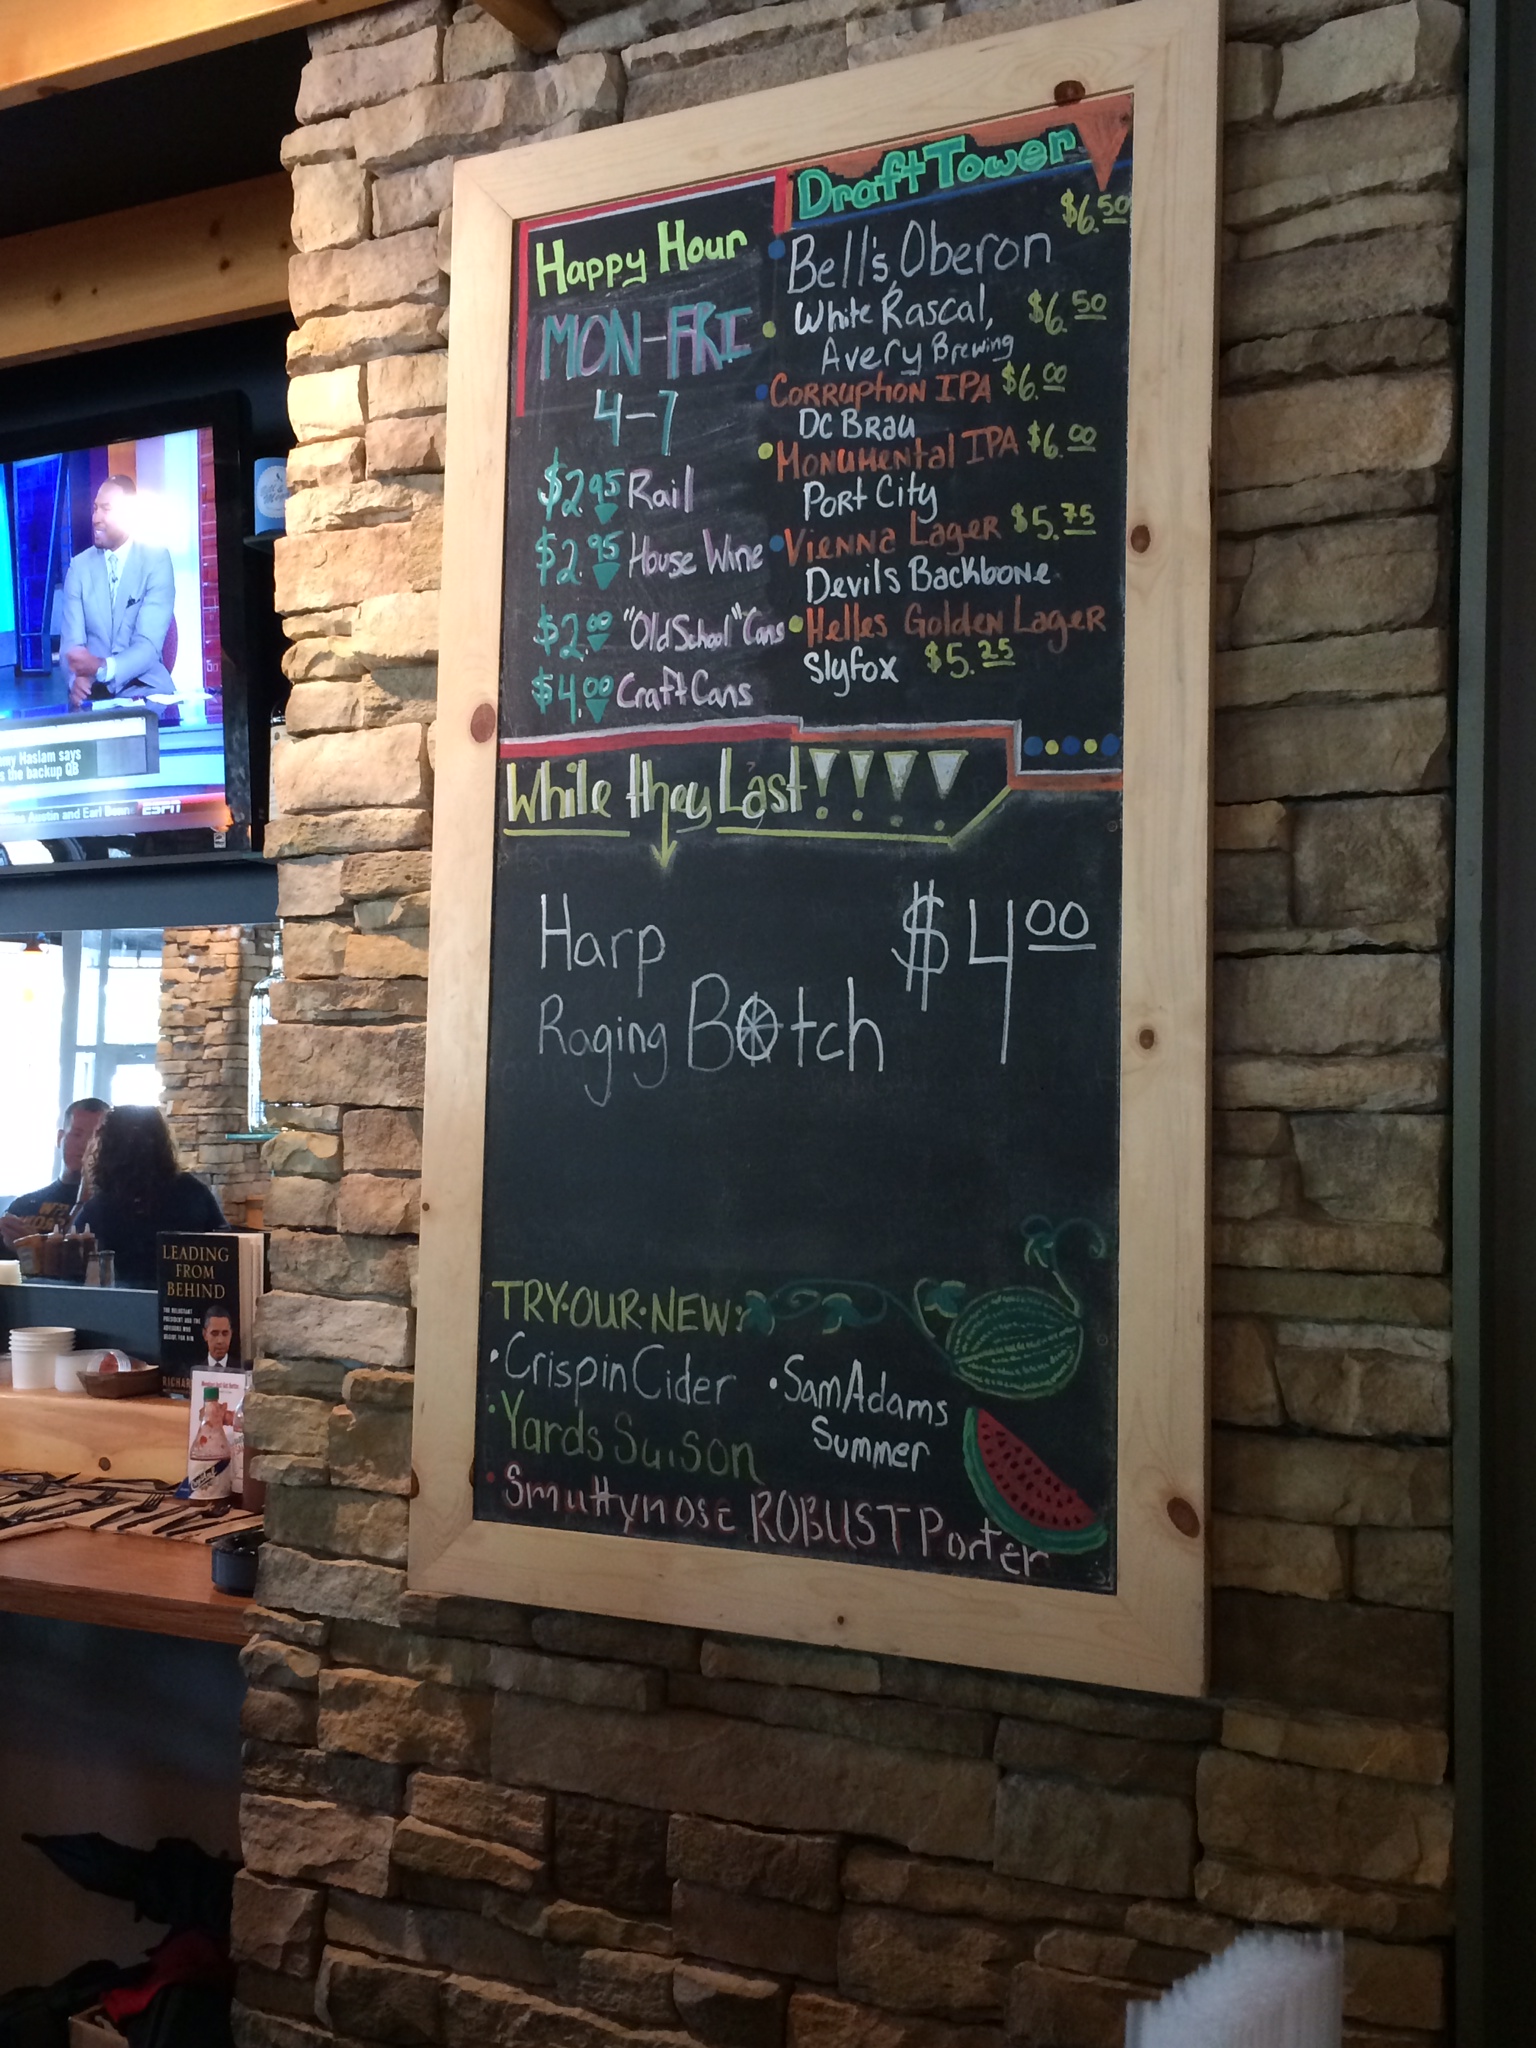 Happy Hour
MON-FRI
4-7
$2.95 Rail
$2.95 House Wine
$2.00 "Old School" Cans
$4.00 Craft Cans
Draft Tower
$6.50
Bell's Oberon
White Rascal, $6.50
Avery Brewing
Corruption IPA $6.00
DC Brau
Monumental IPA $6.00
Port City
Vienna Lager $5.75
Devils Backbone
Helles Golden Lager
Slyfox $5.25
While they Last!!!!
Harp $4.00
Raging Botch
TRY·OUR·NEW:
Crispin Cider
Yards Saison
Smuttynose ROBUST Porter
Sam Adams
Summer
Haslam says
the backup QB
Austin and Earl
ESPN
LEADING
FROM
BEHIND
THE RELUCTANT
PRESIDENT AND THE
ADVISORS WHO
DECIDE FOR HIM
RICHAR